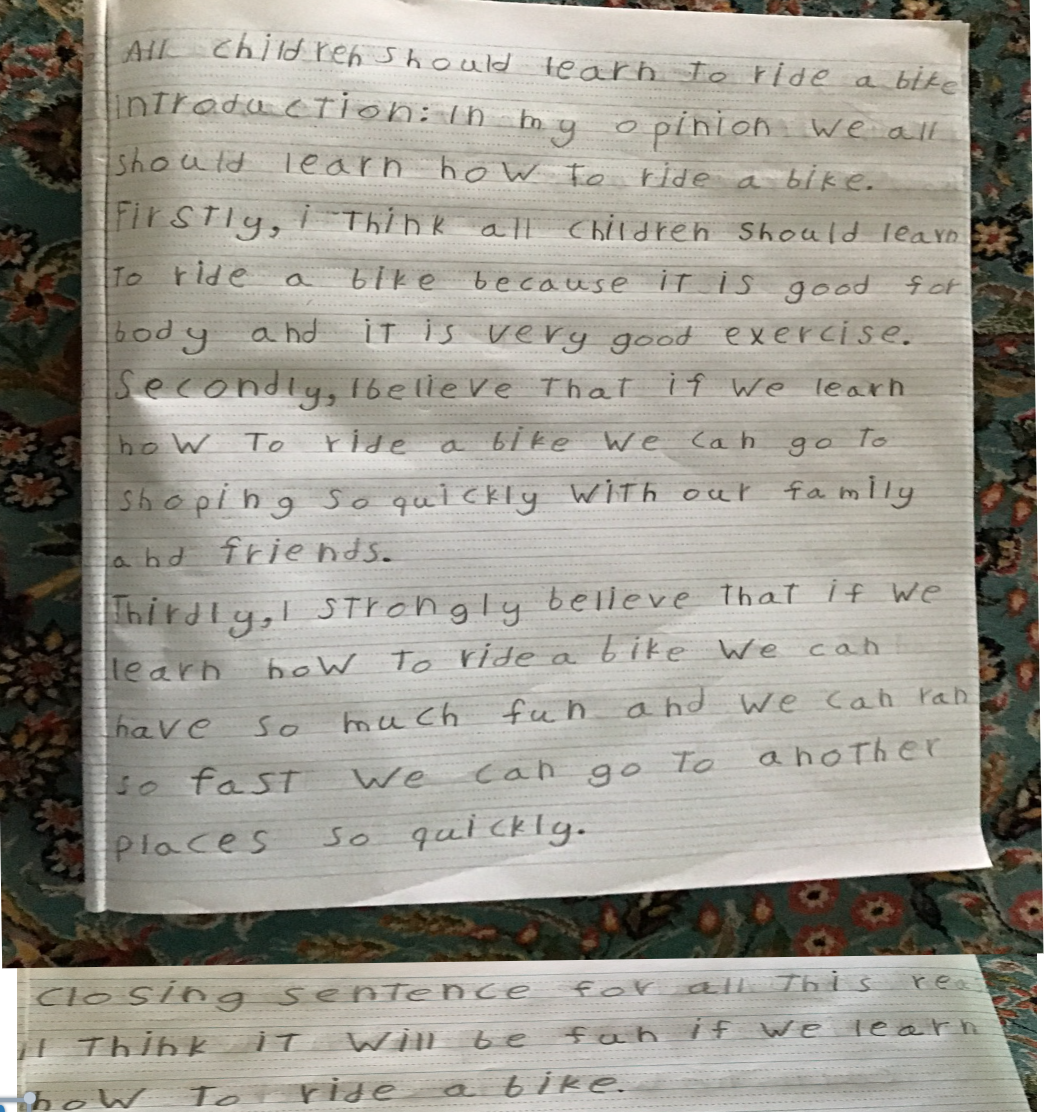 All children should learn to ride a bike
introduction: in my opinion we all
should learn how to ride a bike.
Firstly, i think all children should learn
to ride a bike because it is good for
body and it is very good exercise.
Secondly, I believe that if we learn
how to ride a bike we can go to
shoping so quickly with our family
and friends.
Thirdly, I strongly believe that if we
learn how to ride a bike we can
have so much fun and we can ran
so fast we can go to another
places so quickly.
closing sentence for all this
I think it will be fun if we learn
how to ride a bike.